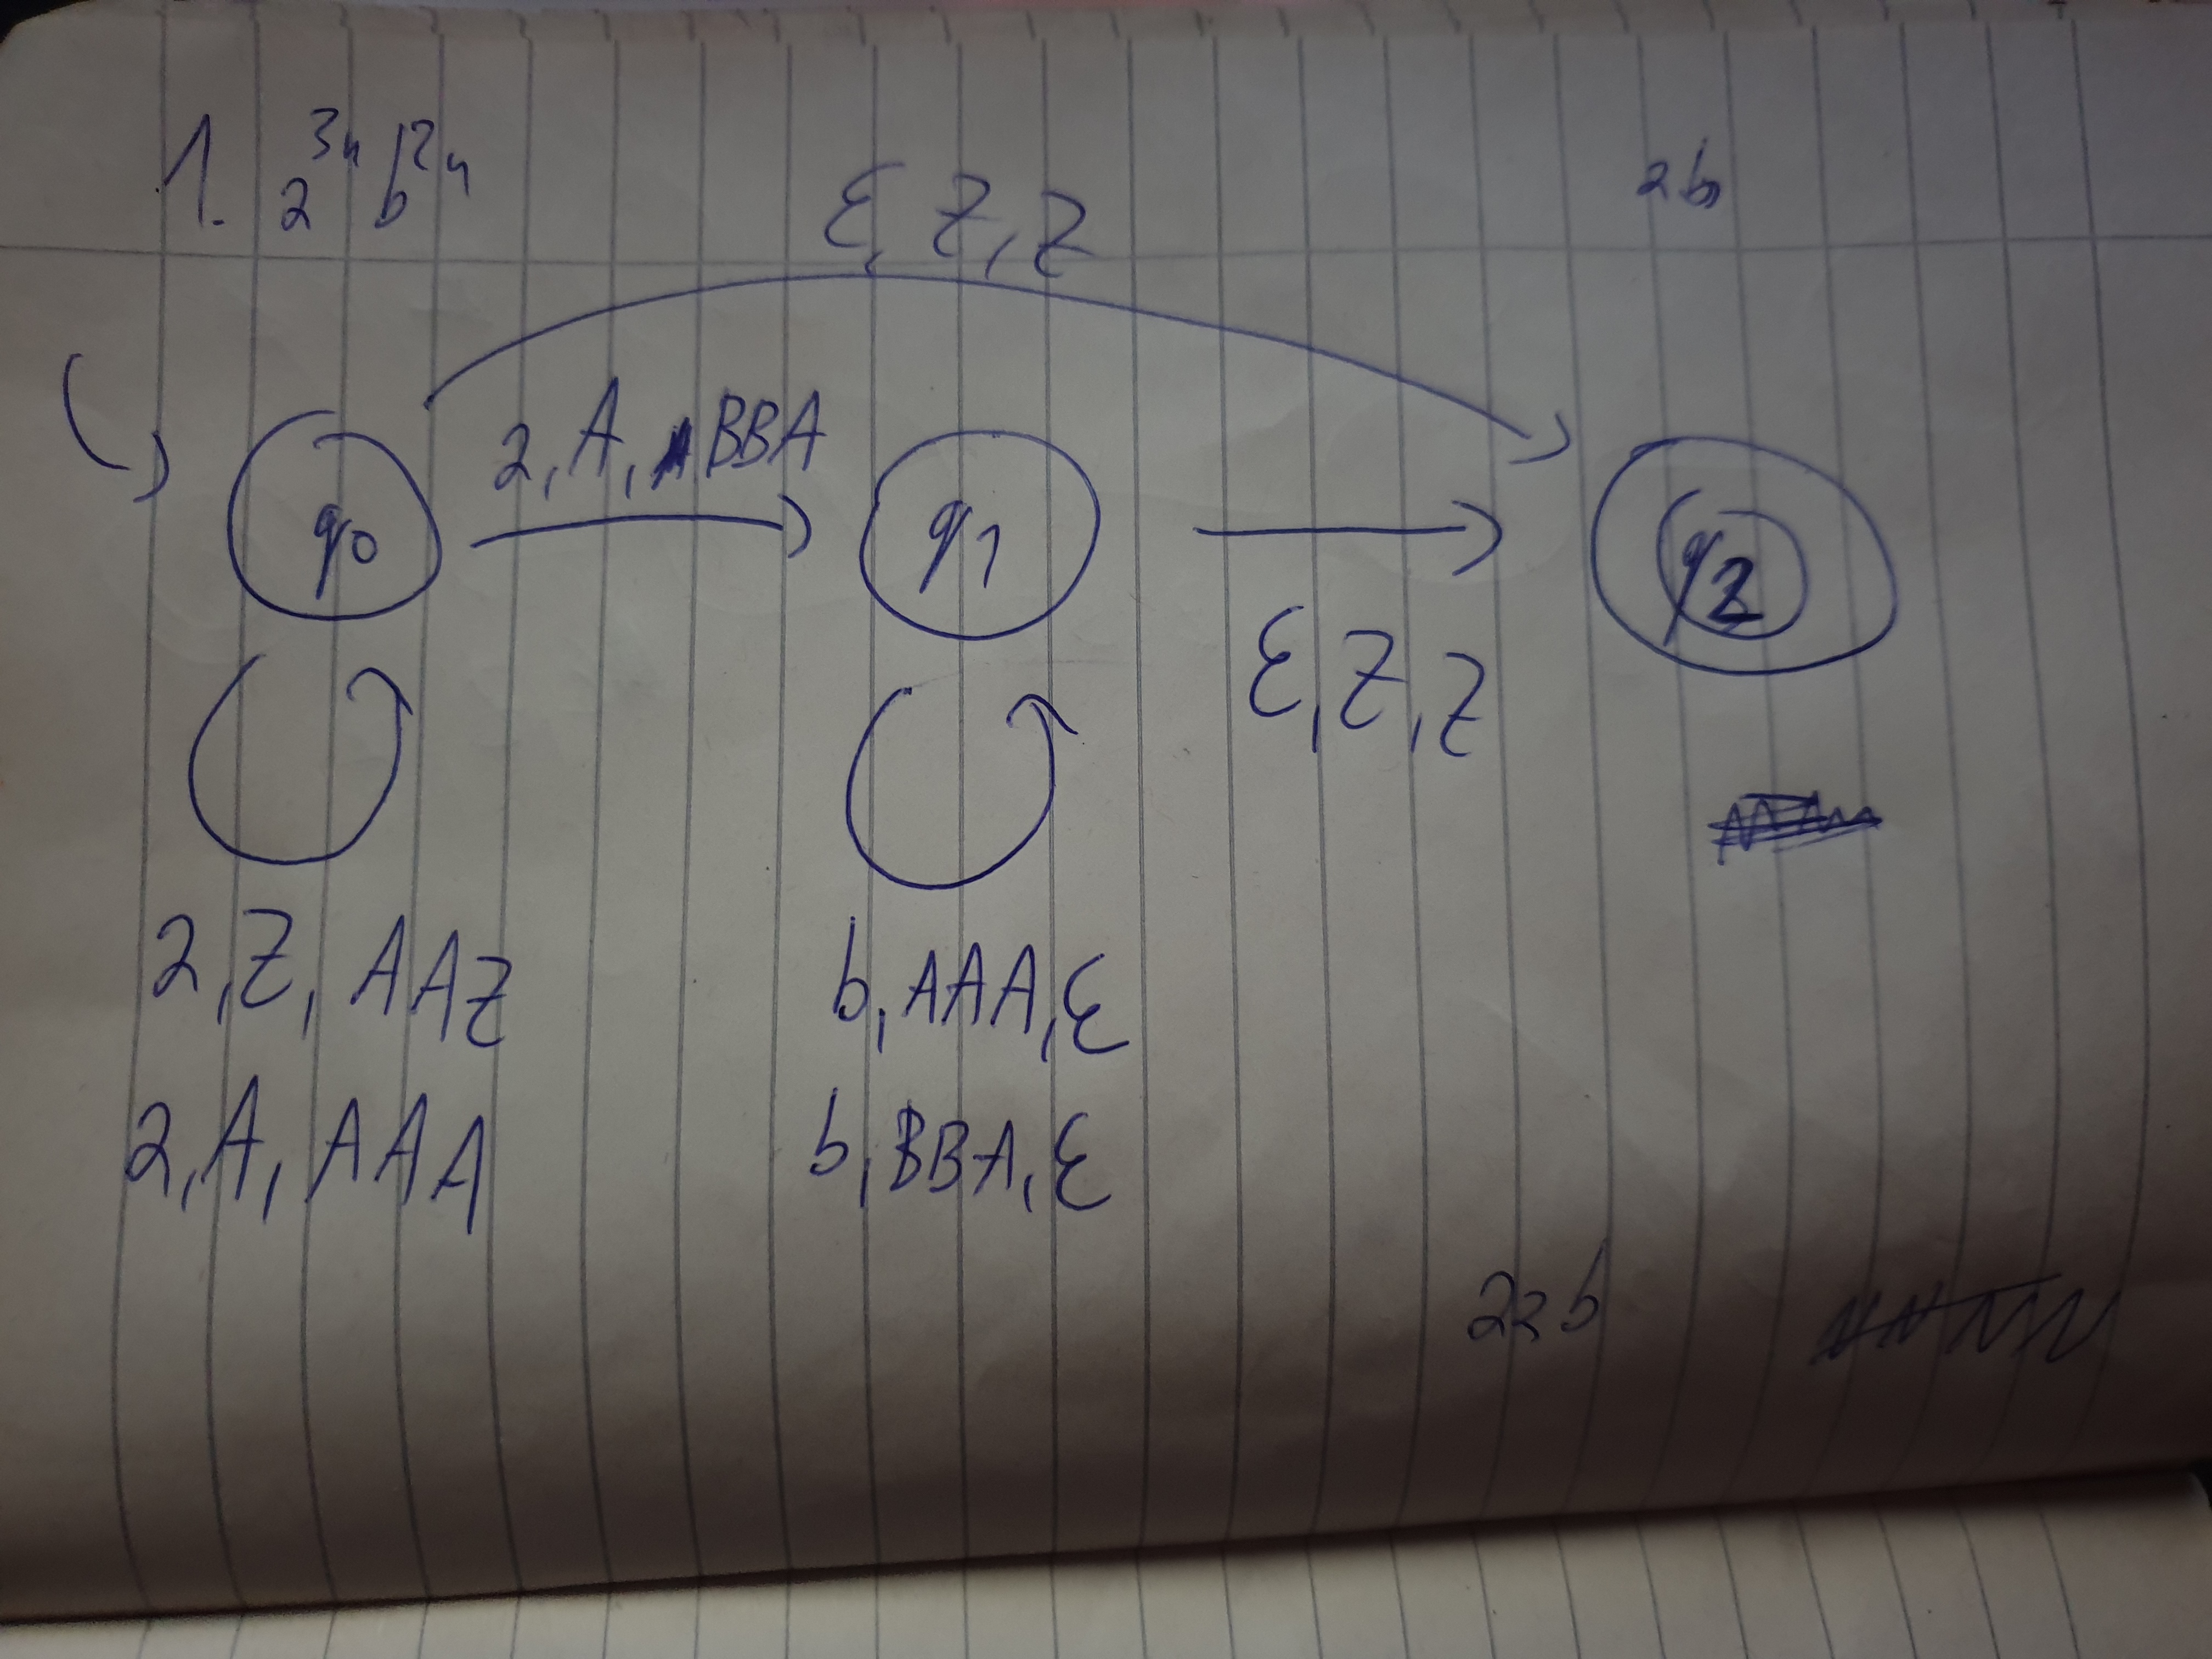 1. a³ⁿ b²ⁿ
ab
ε, Z, Z
a, A, BBA
q₀
q₁
q₂
ε, Z, Z
a, Z, AAZ
a, A, AAA
b, AAA, ε
b, BBA, ε
aab